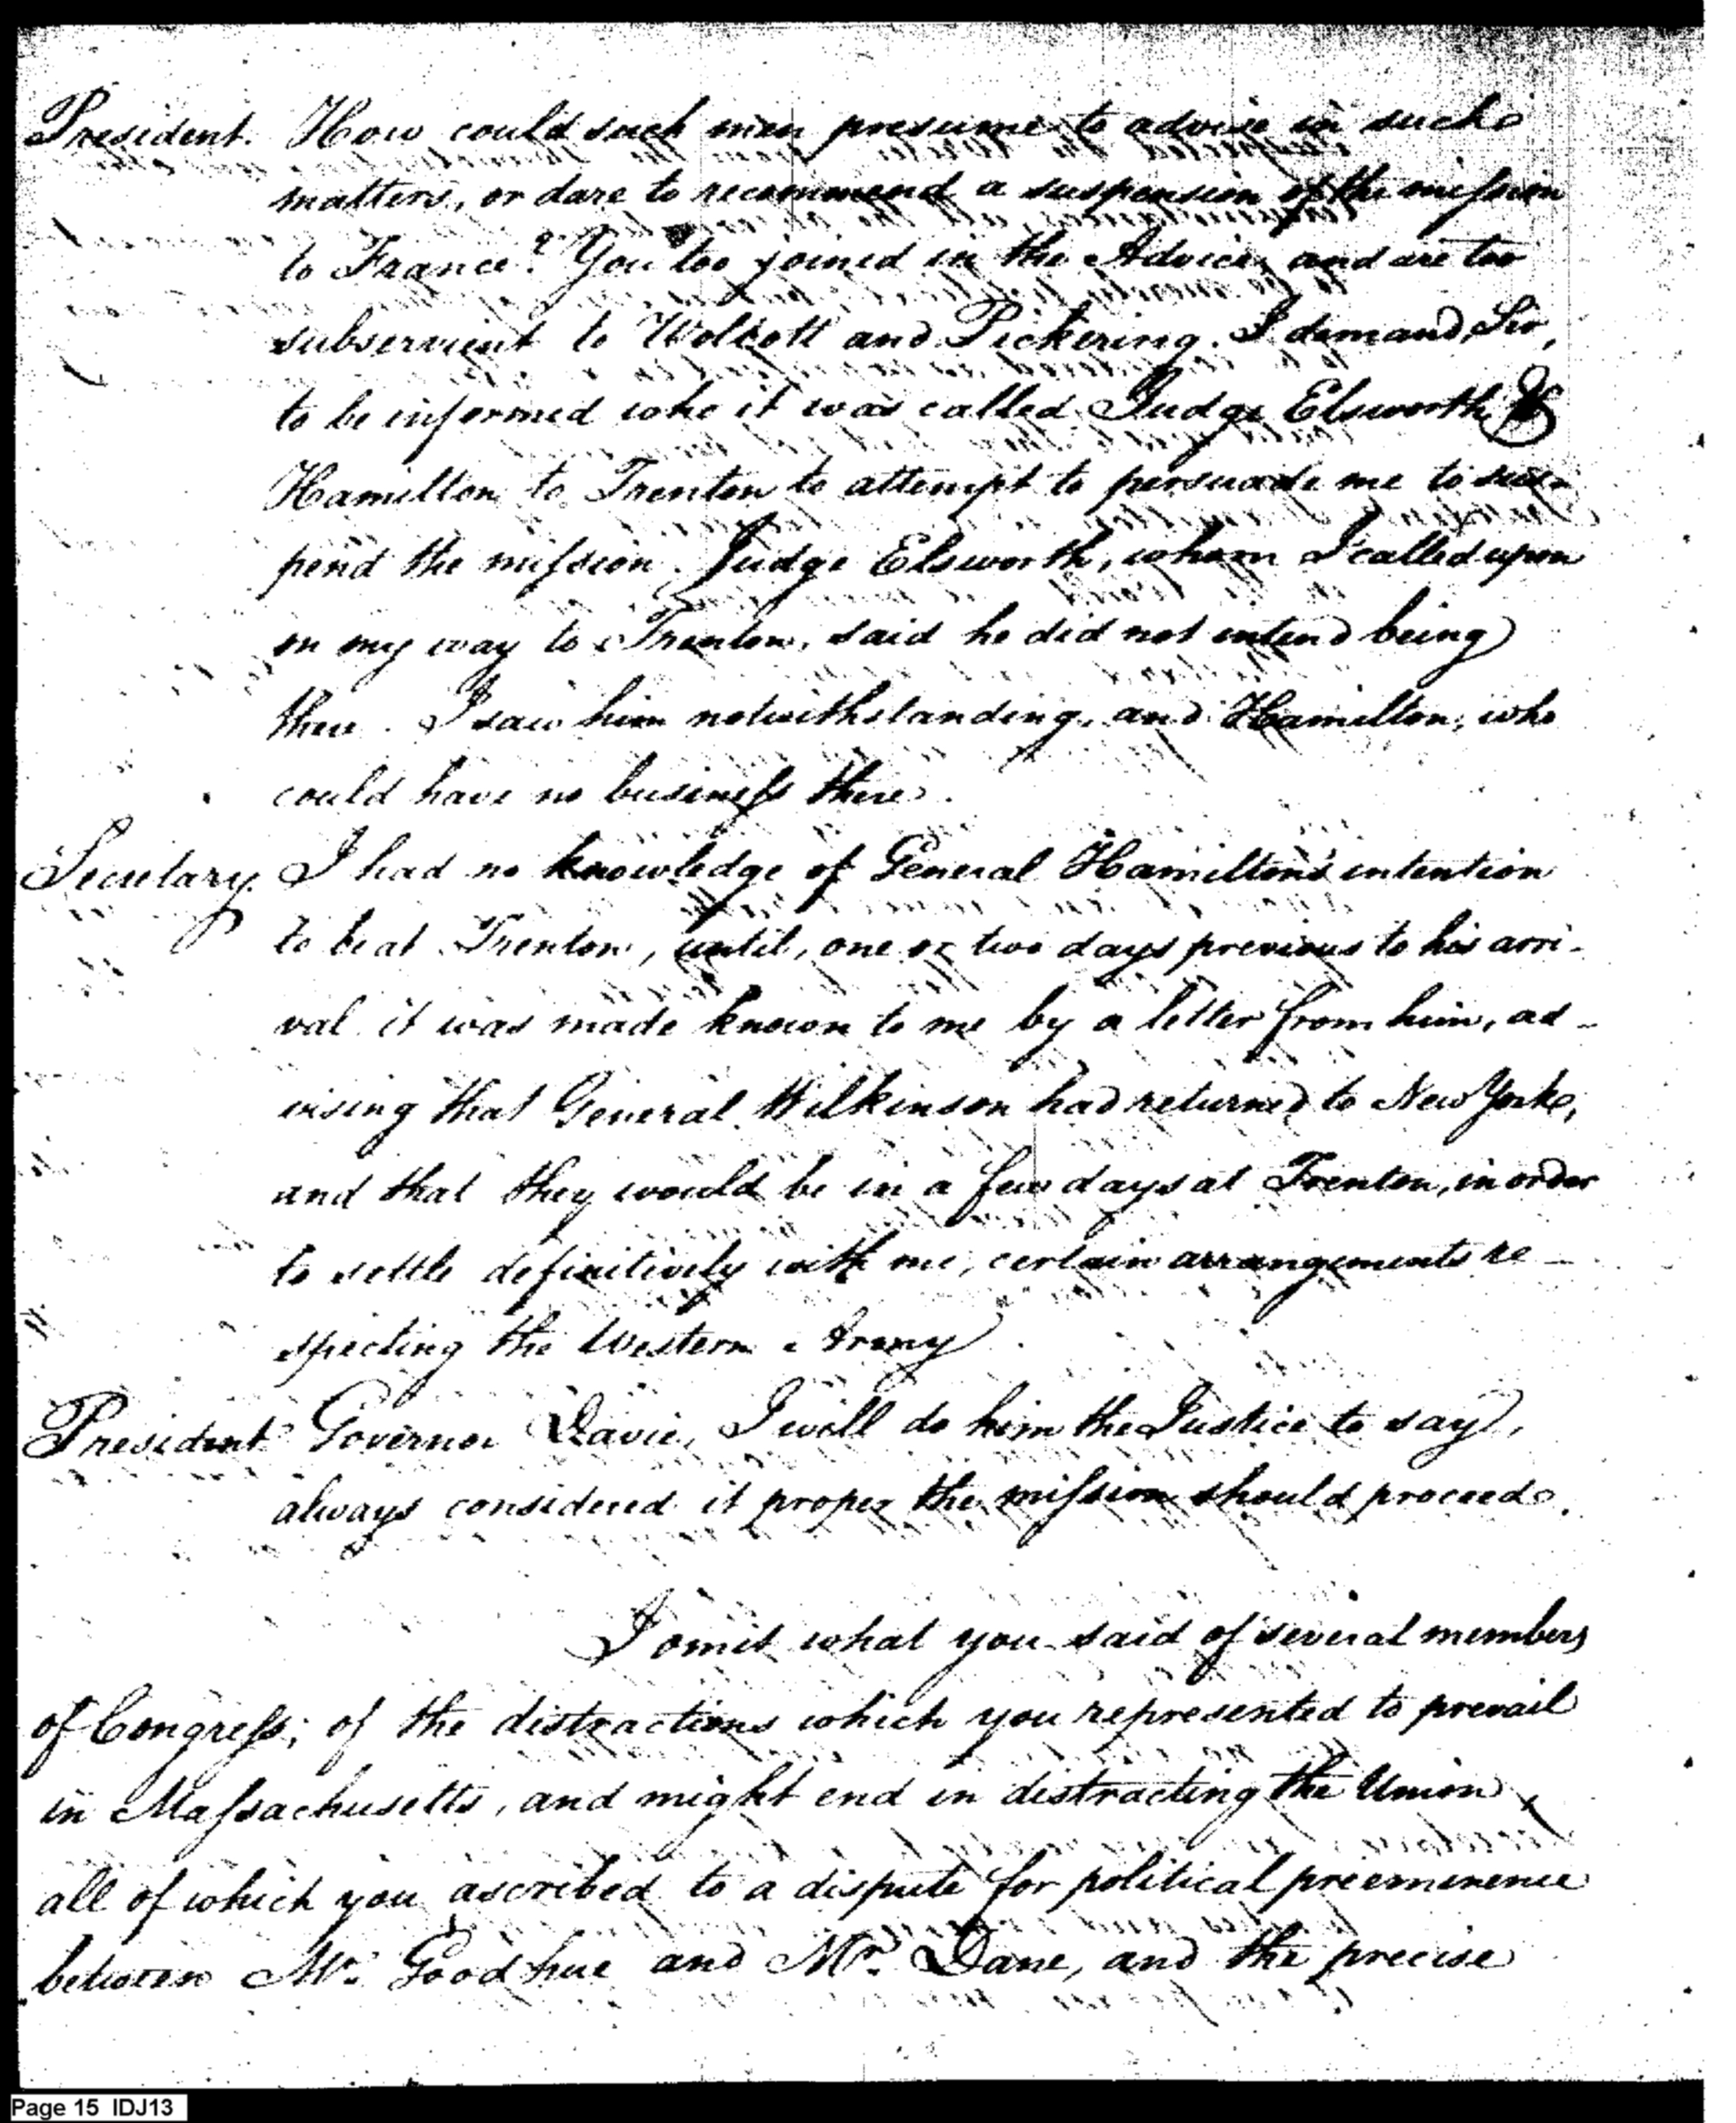 President. How could such men presume to advise in such
matters, or dare to recommend a suspension of the mission
to France? You too joined in the Advice, and are too
subservient to Wolcott and Pickering. I demand, Sir,
to be informed who it was called Judge Elsworth &
Hamilton to Trenton to attempt to persuade me to sus-
pend the mission. Judge Elsworth, whom I called upon
on my way to Trenton, said he did not intend being
there. I saw him notwithstanding, and Hamilton, who
could have no business there.
Secretary. I had no knowledge of General Hamilton's intention
to be at Trenton, until, one or two days previous to his arri-
val it was made known to me by a letter from him, ad-
vising that General Wilkinson had returned to New York,
and that they would be in a few days at Trenton, in order
to settle definitively with me, certain arrangements re-
specting the Western Army.
President Governor Davie, I will do him the Justice to say,
always considered it proper the mission should proceed.
I omit what you said of several members
of Congress; of the distractions which you represented to prevail
in Massachusetts, and might end in distracting the Union,
all of which you ascribed to a dispute for political preeminence
between Mr. Goodhue and Mr. Dane, and the precise
Page 15 IDJ13